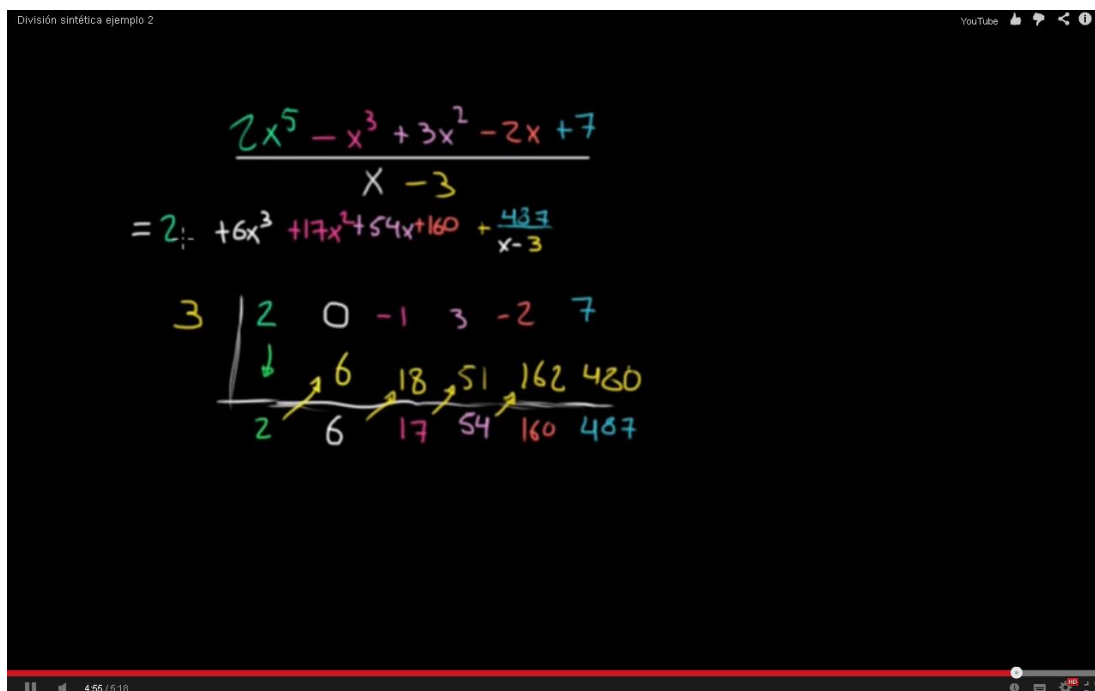 División sintética ejemplo 2
YouTube
2x⁵ - x³ + 3x² - 2x + 7
x - 3
= 2 +6x³ +17x² +54x +160 + 487
x - 3
3 2 0 -1 3 -2 7
6 18 51 162 480
2 6 17 54 160 487
4:55 / 5:18
HD